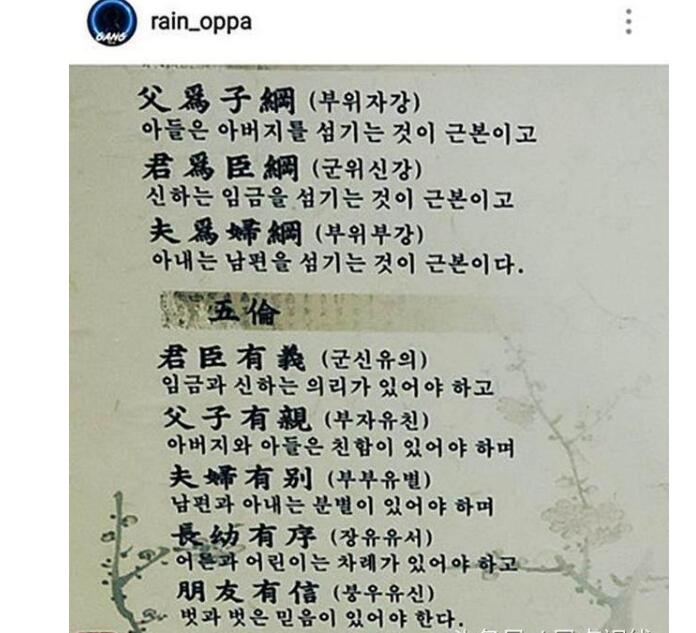 rain_oppa
GANG
父爲子綱 (부위자강)
아들은 아버지를 섬기는 것이 근본이고
君爲臣綱 (군위신강)
신하는 임금을 섬기는 것이 근본이고
夫爲婦綱 (부위부강)
아내는 남편을 섬기는 것이 근본이다.
五倫
君臣有義 (군신유의)
임금과 신하는 의리가 있어야 하고
父子有親 (부자유친)
아버지와 아들은 친함이 있어야 하며
夫婦有別 (부부유별)
남편과 아내는 분별이 있어야 하며
長幼有序 (장유유서)
어른과 어린이는 차례가 있어야 하고
朋友有信 (붕우유신)
벗과 벗은 믿음이 있어야 한다.